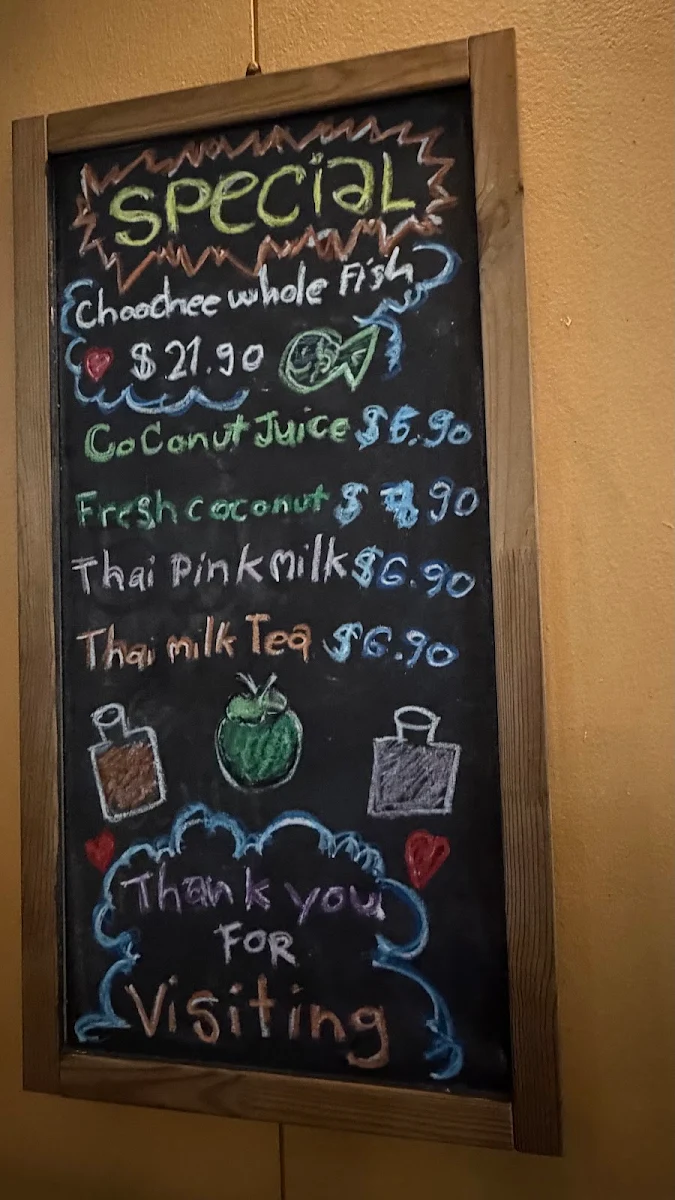 SPeCiaL
Choochee whole Fish
$21.90
CoConut Juice $5.90
Fresh coconut
Thai Pink milk $6.90
Thai milk Tea $6.90
Thank you
FOR
Visiting